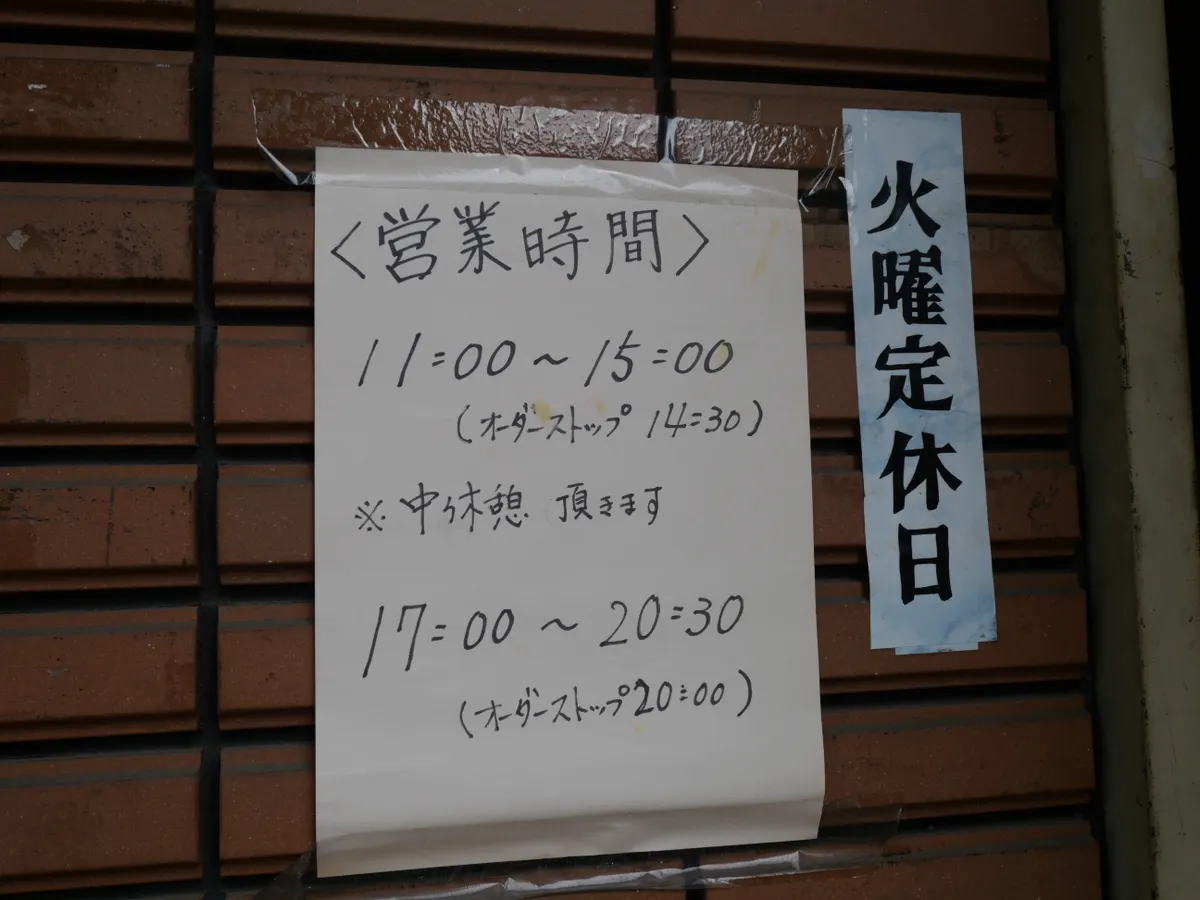 〈営業時間〉
11=00 ~ 15=00
(オーダーストップ 14=30)
※ 中休憩 頂きます
17=00 ~ 20=30
(オーダーストップ20=00)
火曜定休日